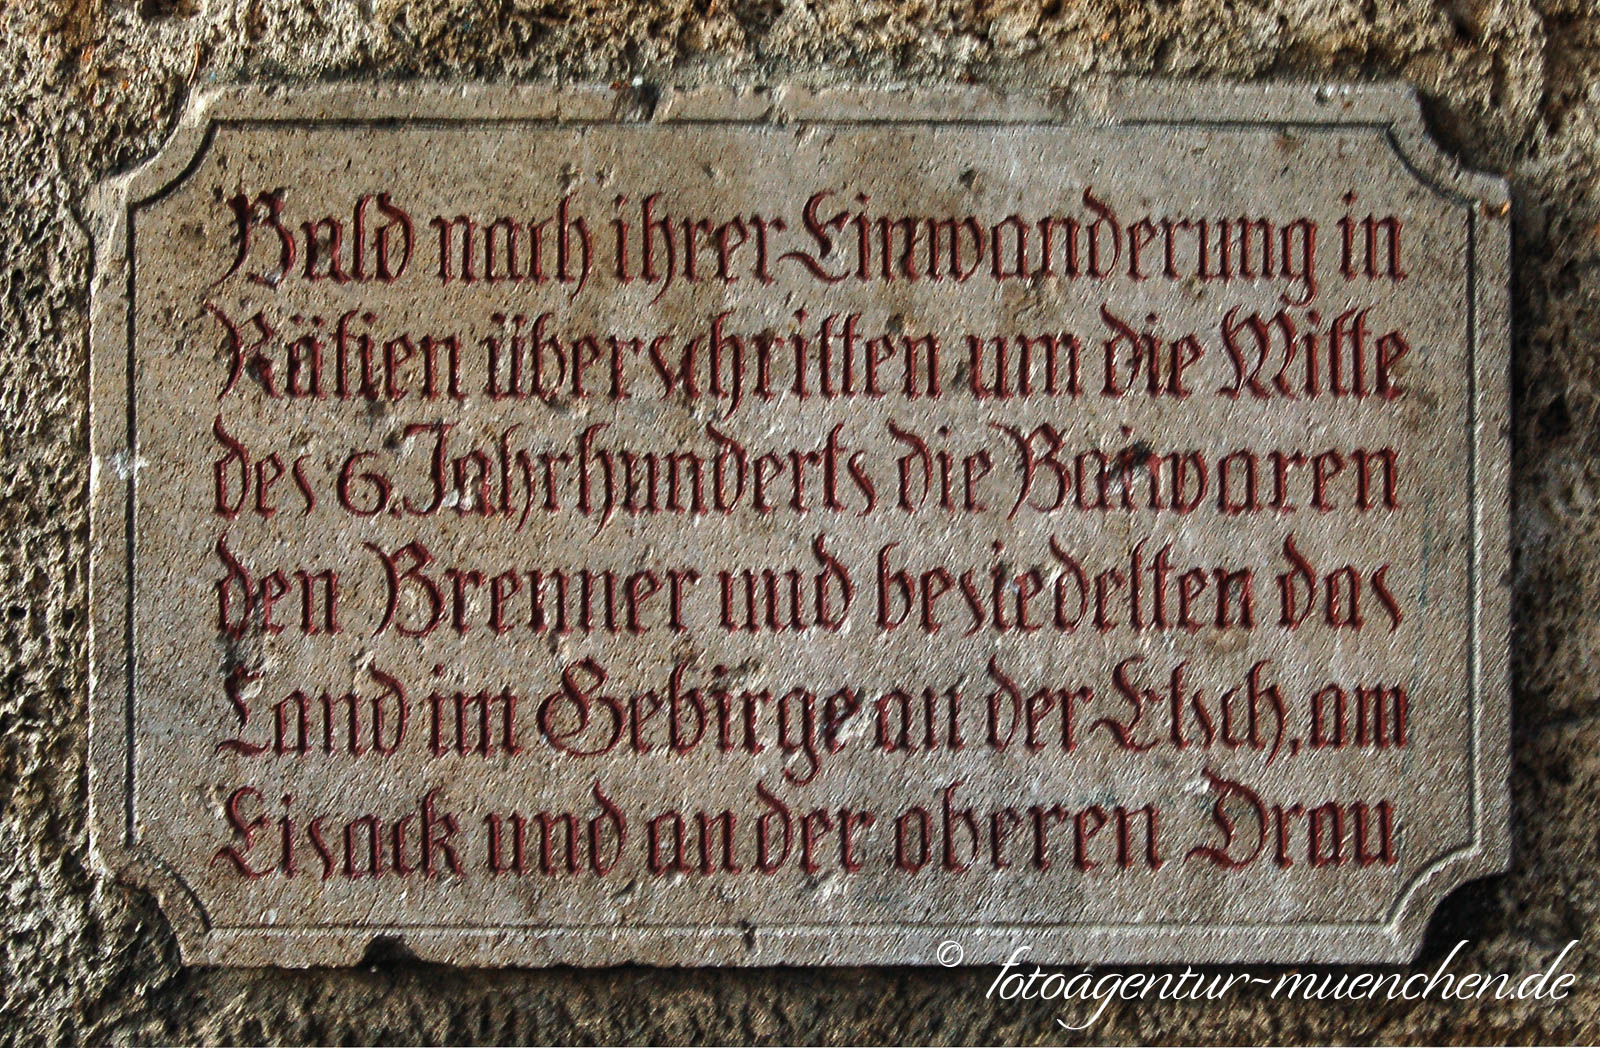 Bald nach ihrer Einwanderung in
Rätien überschritten um die Mitte
des 6. Jahrhunderts die Baiwaren
den Brenner und besiedelten das
Land im Gebirge an der Etsch, am
Eisack und an der oberen Drau
© fotoagentur-muenchen.de